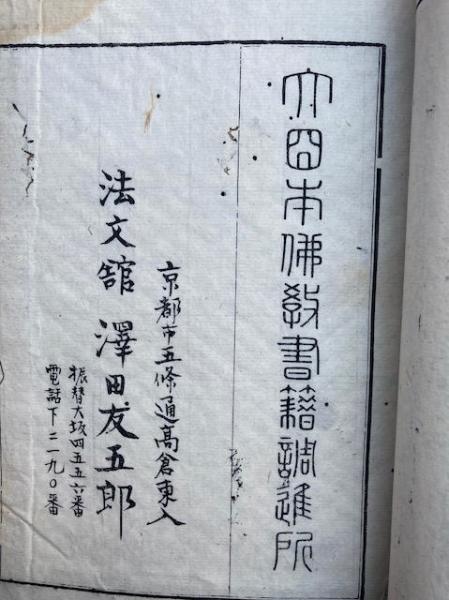 大日本佛教書籍調進所
京都市五條通高倉東入
法文館 澤田友五郎
振替大坂四五五六番
電話下二一九〇番